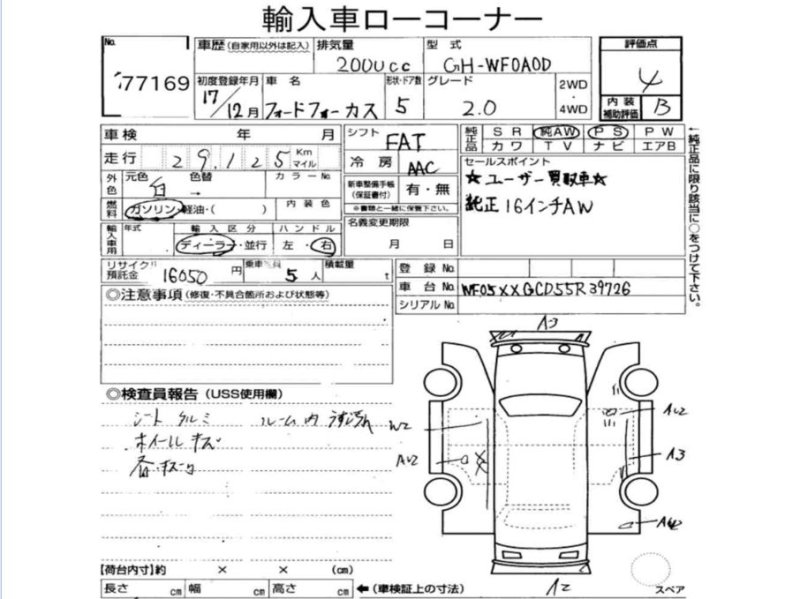 輸入車ローコーナー
No. 77169
車歴 (自家用以外は記入)
排気量 2000cc
型式 GH-WF0A0D
評価点 4
初度登録年月 17/12月
車名 フォードフォーカス
形状・ドア数 5
グレード 2.0
2WD・4WD
内装補助評価 B
車検 年 月
シフト FAT
純正品 SR 純AW PS PW
カワ TV ナビ エアB
走行 29,125 Km マイル
冷房 AAC
セールスポイント
★ユーザー買取車★
純正16インチAW
外色 元色 白 色替 → カラーNo.
新車整備手帳(保証書付) 有・無
※書類と一緒に保管下さい。
燃料 ガソリン・軽油・( ) 内装色
名義変更期限 月 日
輸入車用 年式 輸入区分 ディーラー・並行 ハンドル 左・右
←純正品に限り該当に○をつけて下さい。
リサイクル預託金 16050円
乗車定員 5人
積載量 t
登録No.
車台No. WF05XXGCD55R39726
シリアルNo.
◎注意事項 (修復・不具合箇所および状態等)
◎検査員報告 (USS使用欄)
シート クルミ ルーム内
ホイールキズ
A3
W2
AU2
AU2
A3
A2
【荷台内寸】約 × × (cm)
長さ cm 幅 cm 高さ cm ←(車検証上の寸法)
スペア